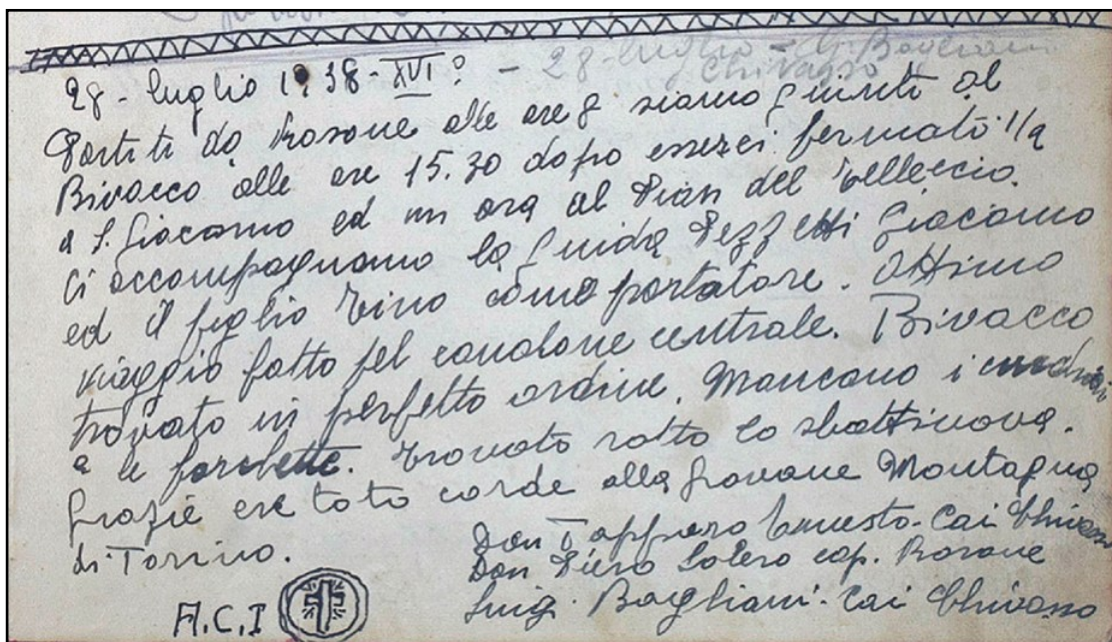 28 - luglio 1938 - XVI° - 28 - luglio - G. Bagliani
Chivasso
Partiti da Rosone alle ore 8 siamo giunti al
Bivacco alle ore 15.30 dopo esserci fermati 1/2
a S. Giacomo ed un ora al Pian del Telleccio.
Ci accompagnano la guida Pezzetti Giacomo
ed il figlio Tino come portatore. Ottimo
viaggio fatto pel canalone centrale. Bivacco
trovato in perfetto ordine. Mancano i
e le forchette. Trovato rotto lo sbattinova.
Grazie ex toto corde alla Giovane Montagna
di Torino.
Don Tapparo Ernesto - Cai Chivasso
Don Piero Solero cap. Rosone
Luigi Bagliani - Cai Chivasso
A.C.I